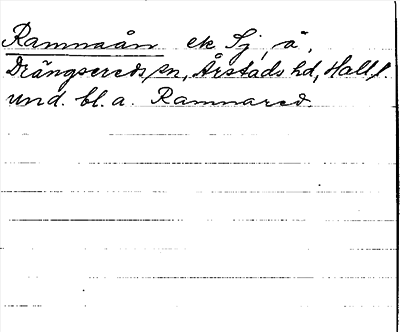 Ramnaån ek Sj, å,
Drängsereds sn, Årstads hd, Hall. l.
und. bl. a. Ramnared.